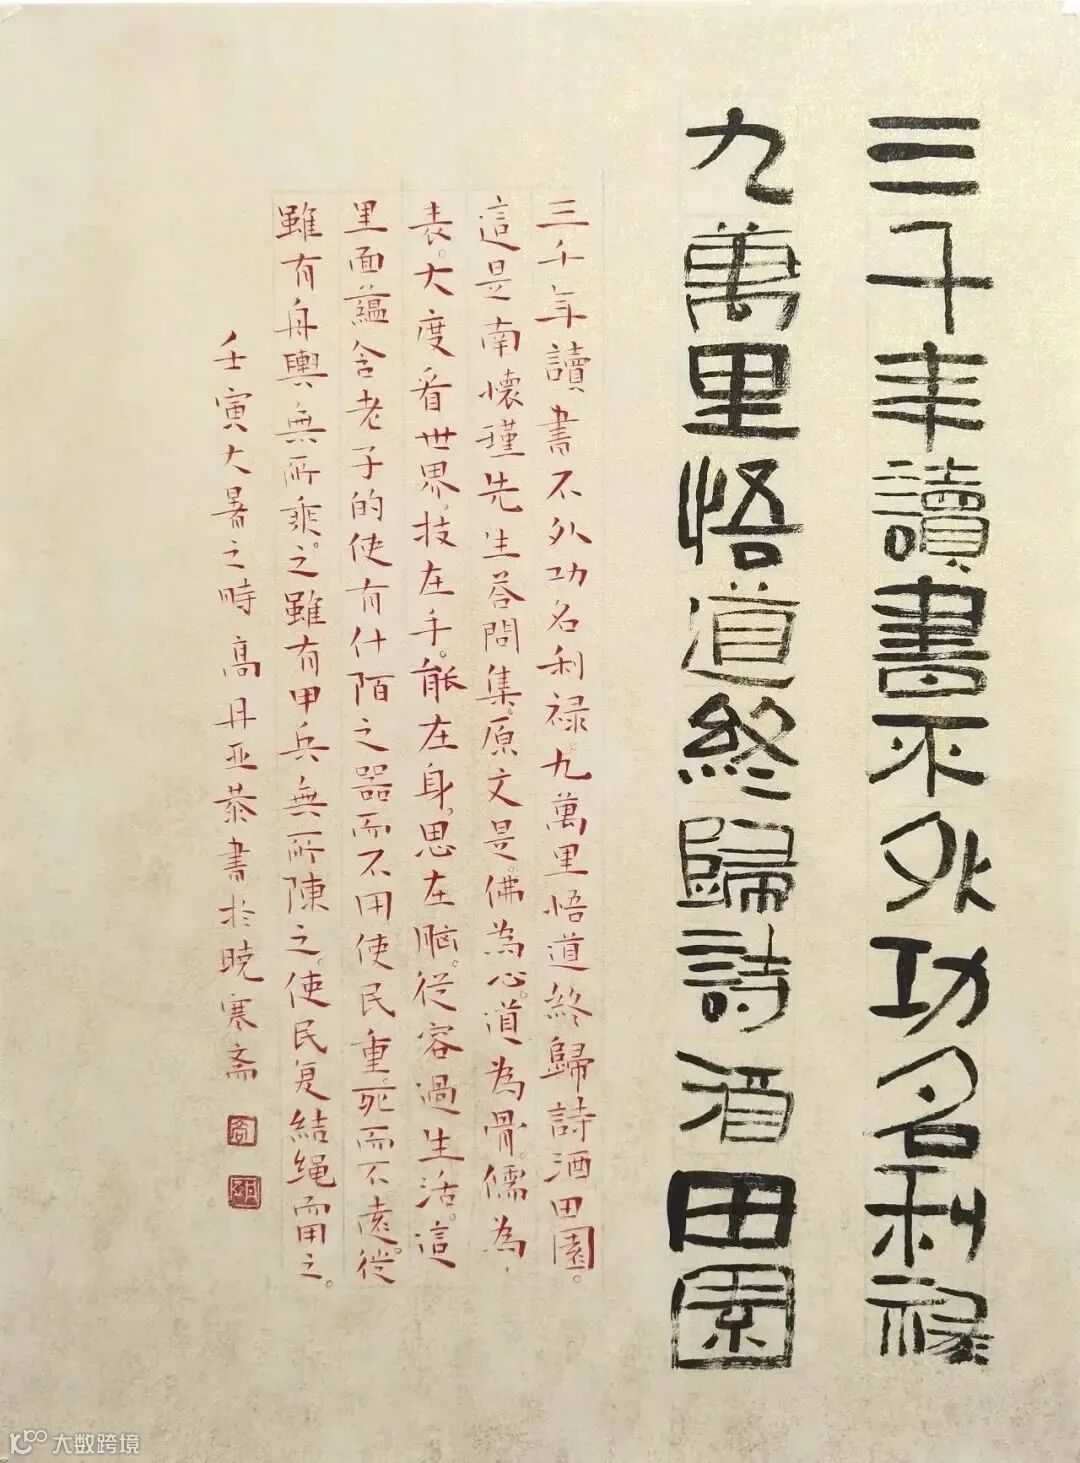 三千年讀書不外功名利祿
九萬里悟道終歸詩酒田園
三千年讀書不外功名利禄。九萬里悟道終歸詩酒田園。
這是南懷瑾先生答問集。原文是。佛為心。道為骨。儒為
表。大度看世界。技在手。能在身。思在脑。從容過生活。這
里面蘊含老子的使有什陌之器而不用使民重死而不遠。從
雖有舟輿無所乘。之雖有甲兵無所陳之。使民复結绳而用之。
壬寅大暑之時高丹亚恭書於暁寒斋
大数跨境